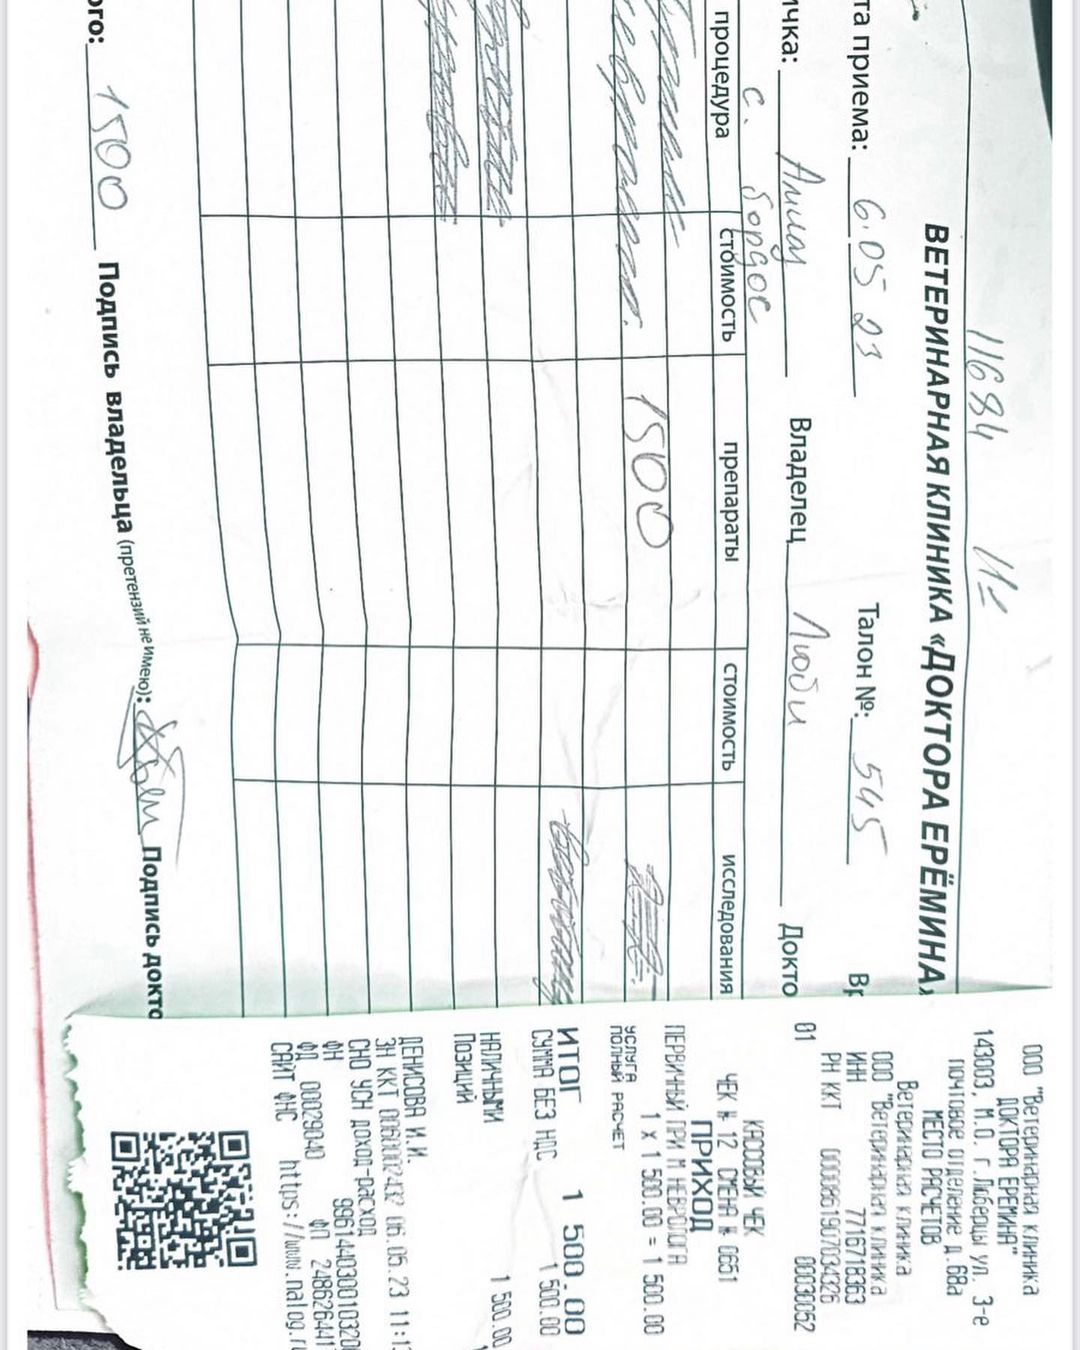 11684
ВЕТЕРИНАРНАЯ КЛИНИКА «ДОКТОРА ЕРЁМИНА»
та приема: 6.05 23 Талон №: 545 Вр
ичка: Владелец Люди Докто
с. бордос
процедура стоимость препараты стоимость исследования
1500
ого: 1500 Подпись владельца (претензий не имею): Подпись докто
ООО "Ветеринарная клиника
ДОКТОРА ЕРЕМИНА"
143003, М.О. г.Люберцы ул. 3-е
почтовое отделение д.68а
МЕСТО РАСЧЕТОВ
Ветеринарная клиника
ООО "Ветеринарная клиника
ИНН 7716718363
РН ККТ 0000861907034326
01 00030052
КАССОВЫЙ ЧЕК
ЧЕК № 12 СМЕНА № 0651
ПРИХОД
ПЕРВИЧНЫЙ ПРИ М НЕВРОЛОГА
1 X 1 500.00 = 1 500.00
УСЛУГА
ПОЛНЫЙ РАСЧЕТ
ИТОГ 1 500.00
СУММА БЕЗ НДС 1 500.00
НАЛИЧНЫМИ 1 500.00
Позиций
ДЕНИСОВА И.И.
ЗН ККТ 06.05.23
СНО УСН ДОХОД-РАСХОД
ФН
ФД 0002904
ФП 248626441
САЙТ ФНС https://www.nalog.ru